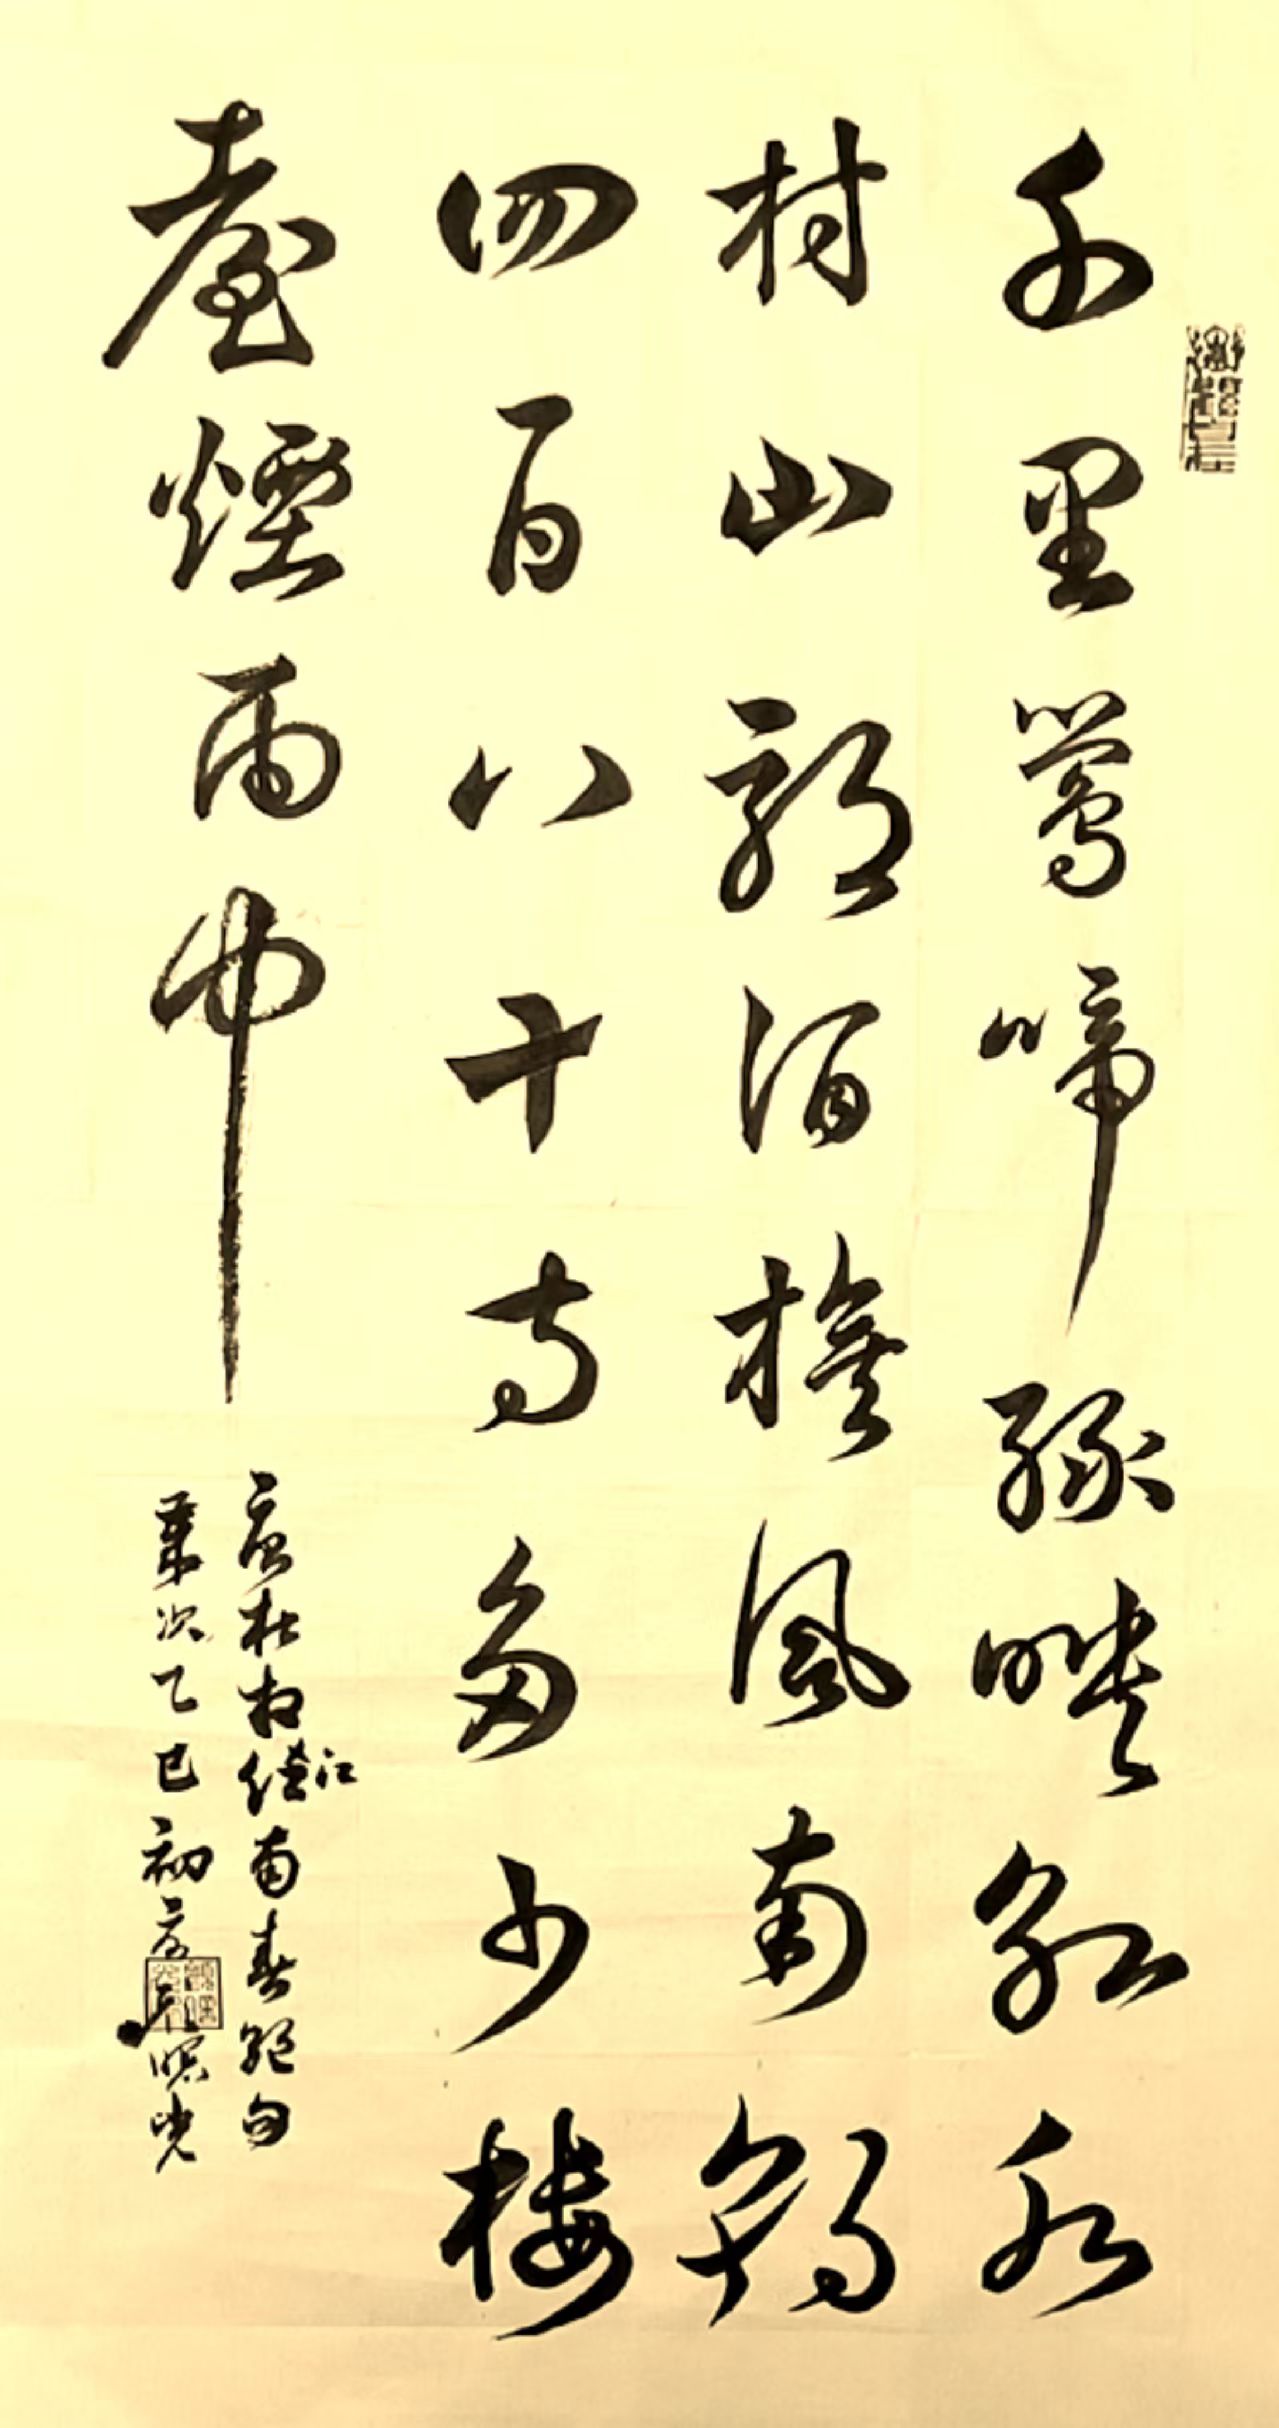 千里鶯啼緑映紅水
村山郭酒旗風南朝
四百八十寺多少樓
臺煙雨中
唐杜牧江南春絶句
歲次乙巳初夏